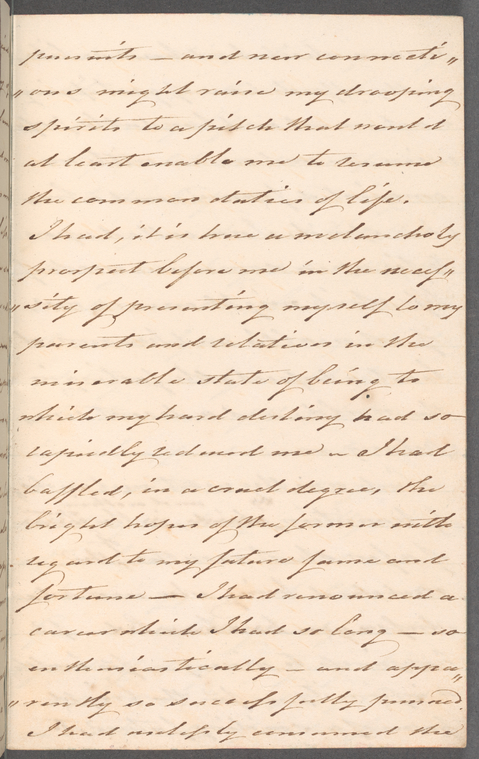 pursuits — and new connecti„
„ons might raise my drooping
spirits to a pitch that would
at least enable me to resume
the common duties of life.
I had, it is true a melancholy
prospect before me in the neces„
„sity of presenting myself to my
parents and relatives in the
miserable state of being to
which my hard destiny had so
rapidly reduced me – I had
baffled, in a cruel degree, the
bright hopes of the former with
regard to my future fame and
fortune — I had renounced a
career which I had so long — so
enthusiastically — and appa„
„rently so successfully pursued.
I had uselessly consumed the